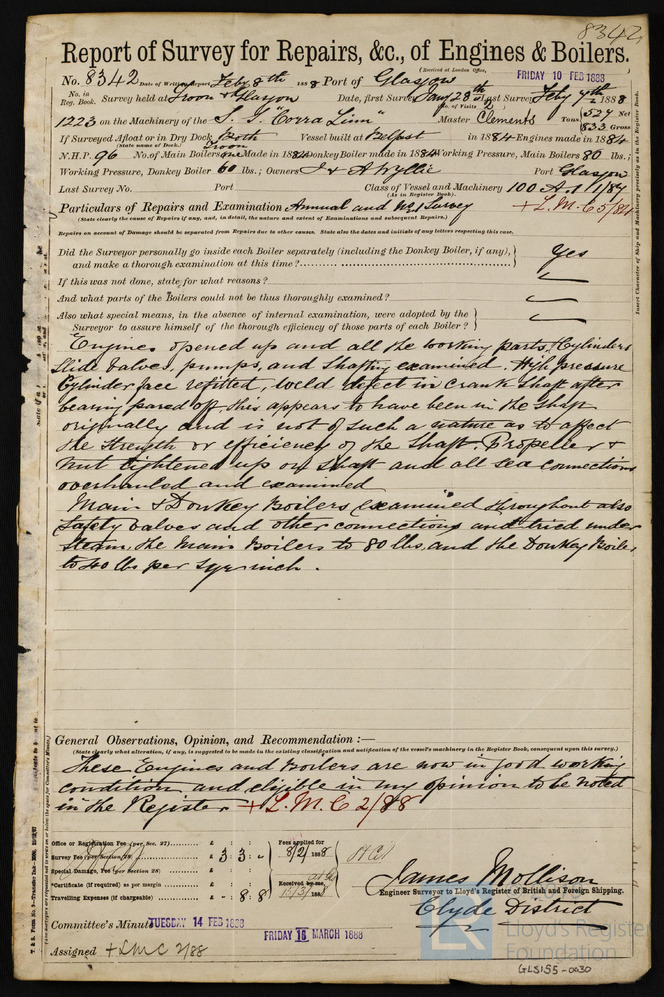 8342
Report of Survey for Repairs, &c., of Engines & Boilers.
(Received at London Office, FRIDAY 10 FEB 1888
No. 8342 Date of Writing Report Feby 8th 1888 Port of Glasgow
No. in Reg. Book. Survey held at Troon & Glasgow Date, first Survey Jany 28th Last Survey Feby 7th 1888
1223 on the Machinery of the S.S. "Corra Linn" Master Clements Tons 527 Net 833 Gross
If Surveyed Afloat or in Dry Dock Both Vessel built at Belfast in 1884 Engines made in 1884
(State name of Dock.) Troon
N.H.P. 96 No. of Main Boilers one Made in 1884 Donkey Boiler made in 1884 Working Pressure, Main Boilers 80 lbs.;
Working Pressure, Donkey Boiler 60 lbs.; Owners J & A Wyllie Port Glasgow
Last Survey No. Port Class of Vessel and Machinery 100 A1 11/87
(As in Register Book). + L.M.C 5/84
Particulars of Repairs and Examination Annual and No1 Survey
(State clearly the cause of Repairs if any, and, in detail, the nature and extent of Examinations and subsequent Repairs.)
Repairs on account of Damage should be separated from Repairs due to other causes. State also the dates and initials of any letters respecting this case.
Did the Surveyor personally go inside each Boiler separately (including the Donkey Boiler, if any),
and make a thorough examination at this time? Yes
If this was not done, state for what reasons?
And what parts of the Boilers could not be thus thoroughly examined?
Also what special means, in the absence of internal examination, were adopted by the
Surveyor to assure himself of the thorough efficiency of those parts of each Boiler?
Insert Character of Ship and Machinery precisely as in the Register Book.
Engines opened up and all the working parts, Cylinders
Slide Valves, pumps, and Shafting examined. High pressure
Cylinder face refitted, weld defect in crank shaft after
bearing pared off, this appears to have been in the shaft
originally and is not of such a nature as to affect
the strength or efficiency of the Shaft. Propeller &
nut tightened up on shaft and all sea connections
overhauled and examined
Main & Donkey Boilers examined throughout also
Safety Valves and other connections and tried under
Steam, the Main Boilers to 80 lbs, and the Donkey Boiler
to 40 lbs per sqre inch.
General Observations, Opinion, and Recommendation :—
(State clearly what alteration, if any, is suggested to be made in the existing classification and notification of the vessel's machinery in the Register Book, consequent upon this survey.)
These Engines and Boilers are now in good working
condition and eligible in my opinion to be noted
in the Register + L.M.C 2/88
Office or Registration Fee (per Sec. 27) £
Survey Fee (per Section 28) £ 3 : 3 : -
Special Damage Fee (per Section 28) £
*Certificate (if required) as per margin £
Travelling Expenses (if chargeable) £ - 8 : 8
Fees applied for
8/2/ 1888
Received by me,
188
James Mollison
Engineer Surveyor to Lloyd's Register of British and Foreign Shipping.
Clyde District
Committee's Minute TUESDAY 14 FEB 1888
FRIDAY 16 MARCH 1888
Assigned + LMC 2/88
Lloyd's Register
Foundation
GLS155-0030